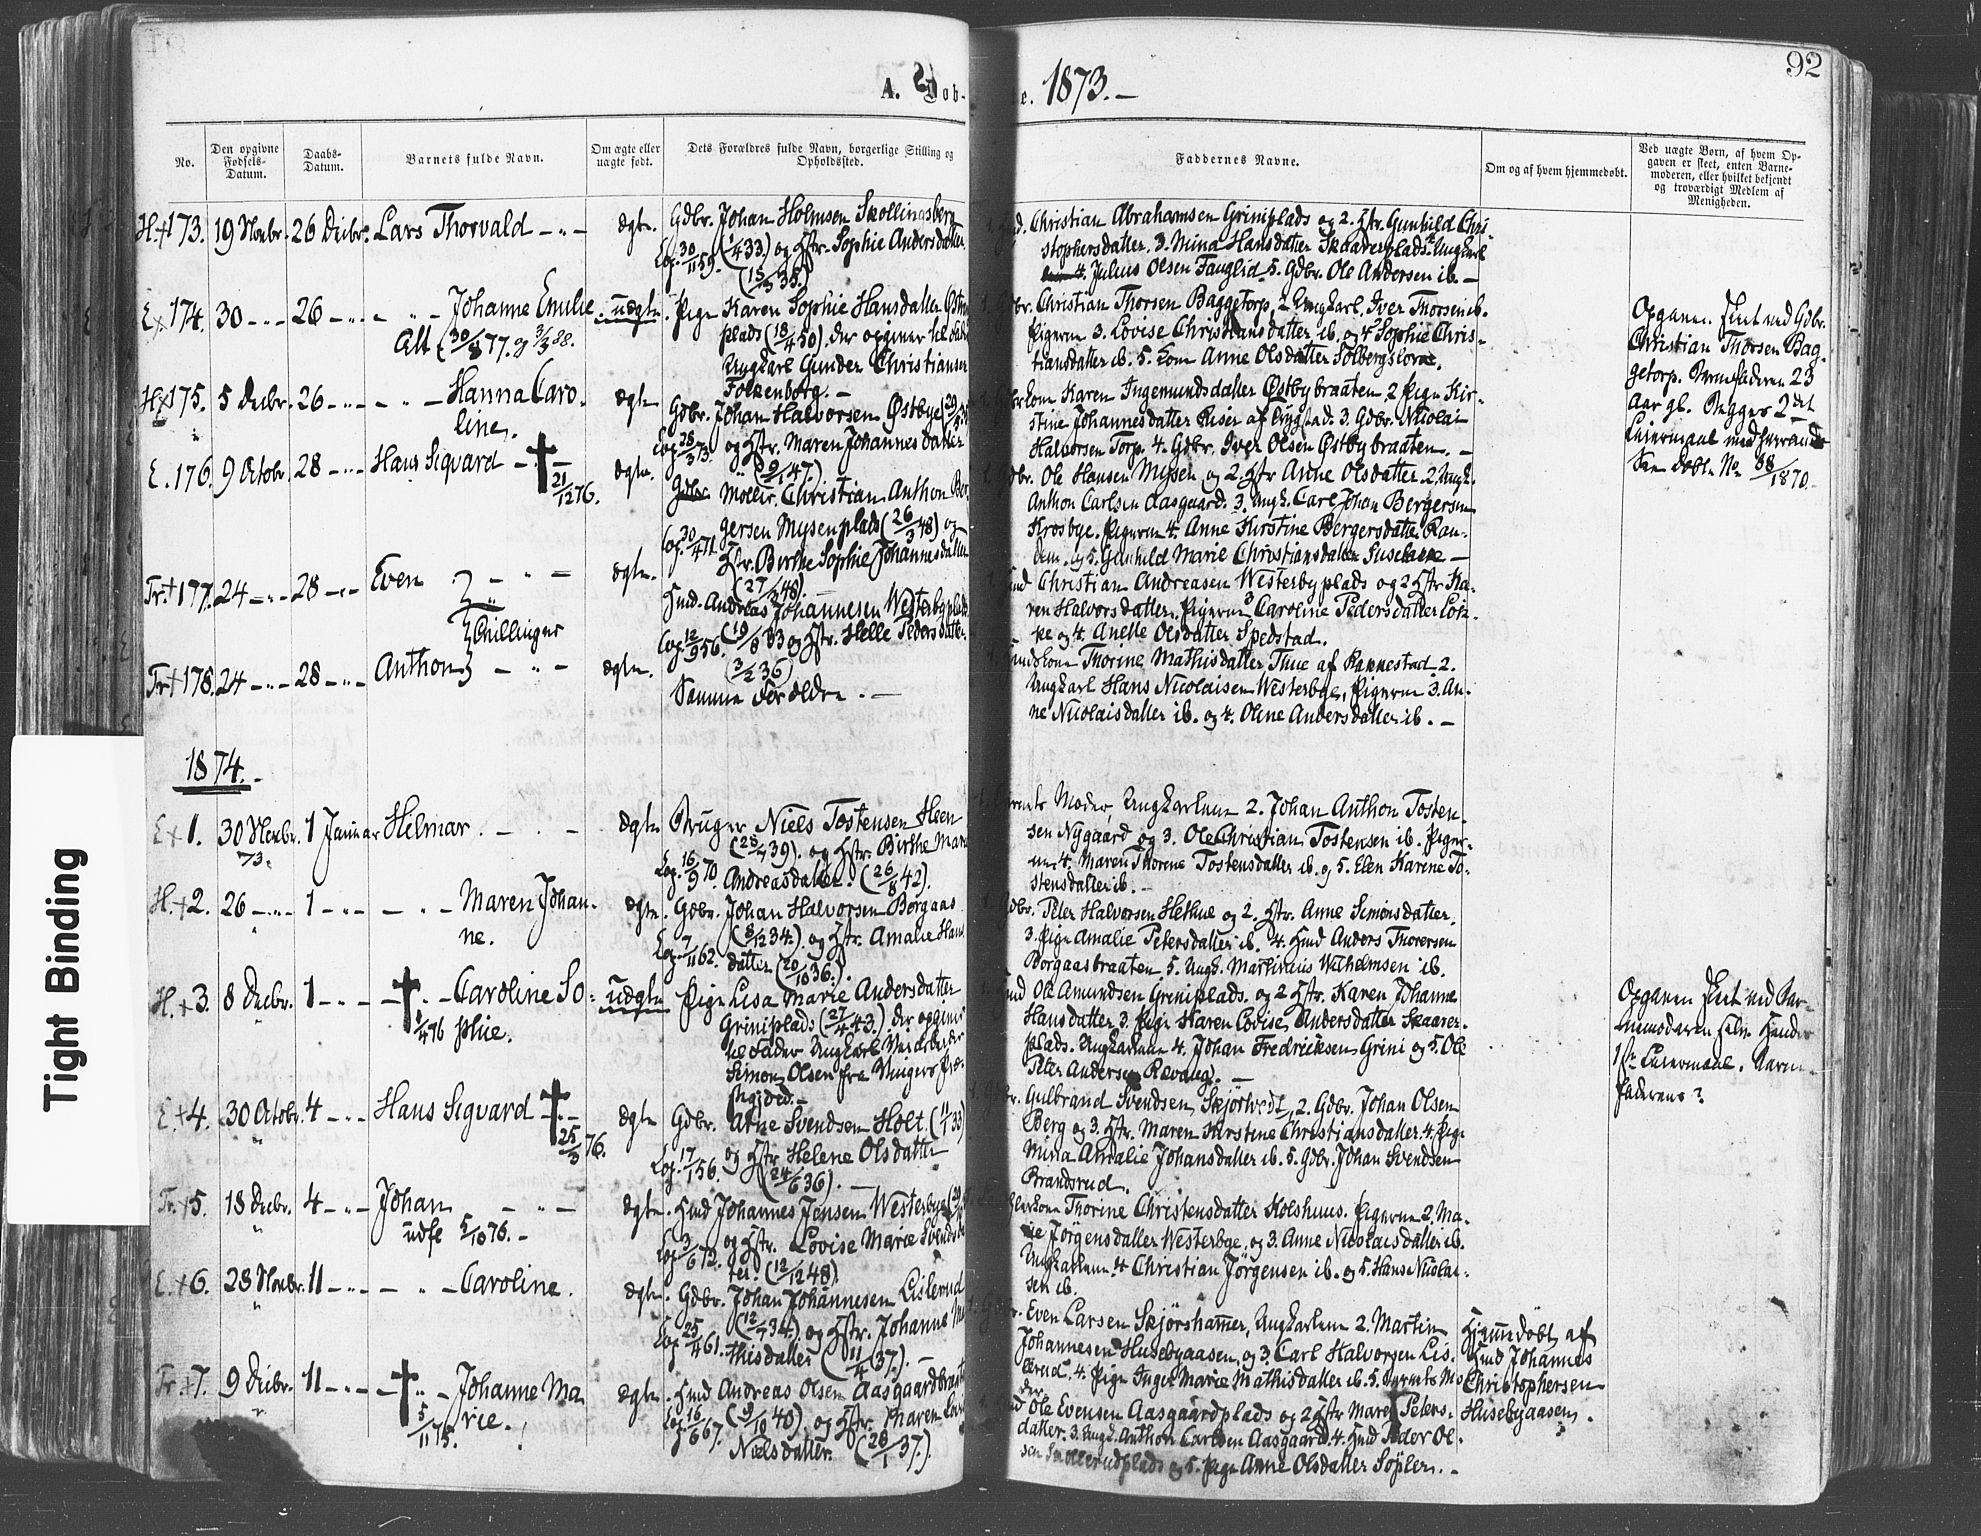 92
A. Døb-
e. 1873. —
No.
Den opgivne Fødsels-Datum.
Daabs-Datum.
Barnets fulde Navn.
Om ægte eller uægte født.
Dets Forældres fulde Navn, borgerlige Stilling og Opholdssted.
Faddernes Navne.
Om og af hvem hjemmedøbt.
Ved uægte Børn, af hvem Opgaven er skeet, enten Barnemoderen, eller hvilket bekjendt og troværdigt Medlem af Menigheden.
H.+ 173. 19 Novbr. 26 Decbr. Lars Thorvald — " — ægte.
Gdbr. Johan Holmsen Skollingsberg
Cop. 30/11 59. (1/4 33.) og Hstr. Sophie Andersdatter
(15/3 35.)
Christian Abrahamsen Griniplads og 2. Hstr. Gunhild Chri-
stophersdatter. 3. Mina Hansdatter Skaarerplads. Ungkarl
4. Julius Olsen Fauglid. 5. Gdbr. Ole Andersen ib. —
E.+ 174. 30 — " — 26 — " — — " — Johanne Emilie uægte.
Att. 30/8 77. og 3/3 88.
Pige Karen Sophie Hansdatter
plads (18/4 50). der opgiver til
Ungkarl Gunder Christiansen
Folkenborg. —
Gdbr. Christian Thorsen Baggetorp, 2. Ungkarl. Iver Thorsen ib.
Pigerne 3. Lovise Christiansdatter ib. og 4 Sophie Chris-
tiansdatter ib. 5. Kone Anne Olsdatter Solbergslovæ.
Opgaven skeet ved Gdbr.
Christian Thorsen Bag-
getorp. Barnefaderen 23
Aar gl. Begges 2det
Leiermaal med hverandre
See Døbt. No 38/1870.
H.+ 175. 5 Decbr. 26 — " — — " — Hanna Caro-
line. ægte
Gdbr. Johan Halvorsen Østbye
Cop. 28/3 73. og Hstr. Maren Johannesdatter
(9/1 47.)
Gdbrkone Karen Ingemundsdatter Østbybraaten. 2 Pige Kir-
stine Johannesdatter Riser af Ryggstad. 3. Gdbr. Nicolai
Halvorsen Torp. 4. Gdbr. Iver Olsen Østbybraaten. —
E. 176. 9 Octobr. 28 — " — Hans Sigvard — † — ægte.
21/12 76.
Møller. Christian Anthon Ber-
gersen Mysenplads (26/3 48) og
Cop. 30/4 71. Hstr. Birthe Sophie Johannesdatter
(27/ 48). —
Gdbr. Ole Hansen Mysen og 2 Hstr Anne Olsdatter. 2. Ungk.
Anthon Carlsen Aasgaard. 3. Ungk. Carl Johan Bergersen
Krosbye. Pigerne 4. Anne Kirstine Bergersdatter Ran-
dem. og 5. Gunhild Marie Christiansdatter —
Tr.+ 177. 24 — " — 28 — " — Even — " — ægte.
Tvillinger
Hmd. Andreas Johannesen Westerbyplads
Cop. 12/9 56. (19/8 33 og Hstr. Helle Pedersdatter
(3/2 36)
Hmd Christian Andreasen Westerbyplads og 2 Hstr Ka-
ren Halvorsdatter. Pigerne 3 Caroline Pedersdatter
og 4. Anette Olsdatter Spedstad.
Tr.+ 178. 24 — " — 28 — " — Anthon — " — ægte.
Samme Forældre. —
Thorine Mathisdatter Thue af Rannestad. 2.
Ungkarl Hans Nicolaisen Westerbye, Pigerne 3. An-
ne Nicolaisdatter ib. og 4. Oline Andersdatter ib. —
1874. —
E.+ 1. 30 Novbr. 73. 1 Januar Hilmar. — . — ægte
Bruger Niels Tostensen Heen
(25/7 39). og Hstr. Birthe Maria
Cop. 16/9 70 Andreasdatter. (26/8 42).
Barnets Moder, Ungkarlene 2. Johan Anthon Tosten-
sen Nygaard og 3. Ole Christian Tostensen ib. Piger-
ne 4. Maren Thorine Tostensdatter ib. og 5. Elen Karine To-
stensdatter ib. —
H.+ 2. 26 — " — 1 — " — — " — Maren Johan-
ne. ægte.
Gdbr. Johan Halvorsen Borgaas
(8/12 34.) og Hstr. Amalie Hans
Cop. 7/11 62. datter (20/10 36.).
Gdbr. Peter Halvorsen Hethue og 2. Hstr. Anne Simonsdatter.
3. Pige Amalie Petersdatter ib. 4. Hmd Anders Thoresen
Borgaasbraaten. 5. Ungk. Martinius Wilhelmsen ib.
H.+ 3. 8 Decbr. 1 — " — — † " — Caroline So-
phie. uægte
1/4 76
Pige Lisa Marie Andersdatter
Griniplads (27/4 43.) der opgiver
til Fader Ungkarl Veiarbeider
Simon Olsen fra Vingers Præ-
stegjeld. —
Hmd Ole Amundsen Griniplads. og 2 Hstr. Karen Johanne
Hansdatter 3. Pige Karen Lovise Andersdatter Skaarer-
plads. Ungkarlene 4. Johan Fredricksen Grini og 5. Ole
Peter Andersen Revaug. —
Opgaven skeet ved Bar-
nemoderen selv. Hendes
1ste Leiermaal. Barne-
faderens?
E.+ 4. 30 Octobr. 4 — " — Hans Sigvard † — ægte
25/3 76.
Gdbr. Arne Svendsen Holt. (11/1 33)
Cop. 17/1 56. og Hstr Helene Olsdatter
(24/6 36). —
Gdbr. Gulbrand Svendsen Skjørtvedt, 2. Gdbr. Johan Olsen
Berg og 3. Hstr. Maren Kirstine Christiansdatter. 4. Pige
Mina Amalie Johansdatter ib. 5. Gdbr. Johan Svendsen
Brandsrud.
Tr.+ 5. 18 Decbr. 4 — " — Johan — " — ægte.
udfl 5/10 76. —
Hmd Johannes Jensen Westerbye
Cop. 3/6 73. og Hstr. Lovise Marie Svendsdat-
ter. (12/12 48).
Thorine Christensdatter Holshuus. Pigerne 2. Ma-
rie Jørgensdatter Westerbye, og 3. Anne Nicolaisdatter ib.
Ungkarlene 4 Christian Jørgensen ib. og 5. Hans Nicolai-
sen ib.
E.+ 6. 28 Novbr. 11 — " — — " — Caroline. ægte.
Gdbr. Johan Johannesen Lislerud
(12/7 34.) og Hstr. Johanne Ma-
Cop. 25/4 61. thisdatter (11/4 37.). —
Even Larsen Skjørshammer, Ungkarlene 2. Martin
Johannesen Husebyaasen, og 3. Carl Halvorsen Lis-
lerud. 4. Pige Inger Marie Mathisdatter ib. 5. Barnets Mo-
der
Hjemmedøbt af
Hmd Johannes
Christophersen
Husebyaasen.
Tr.+ 7. 9 Decbr. 11 — " — — † " — Johanne Ma-
rie. ægte.
5/11 75.
Hmd Andreas Olsen Aasgaardbraaten
Cop. 16/6 67. (9/10 40). og Hstr. Maren
Nielsdatter. (28/1 37.).
Hmd Ole Evensen Aasgaardplads og 2 Hstr Maren Peters-
datter. 3. Ungk. Anthon Carlsen Aasgaard. 4. Hmd Peder Ol-
sen Smollerudplads og 5. Pige Anne Olsdatter Sopler. —
Tight Binding